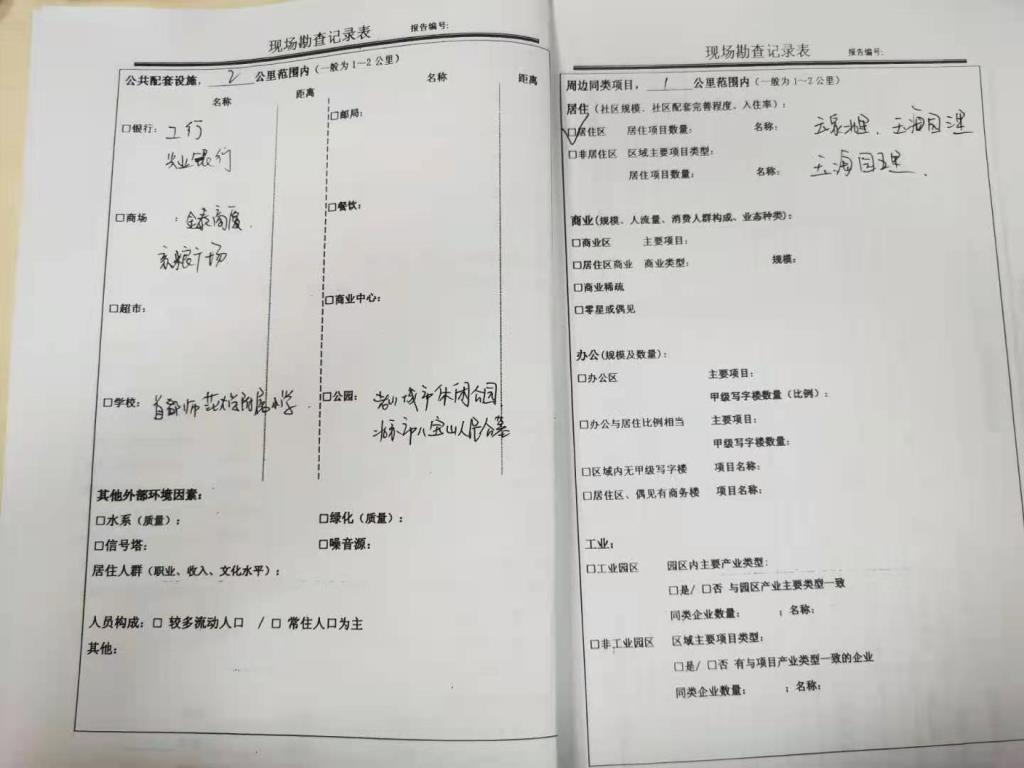 现场勘查记录表 报告编号:
公共配套设施, 2 公里范围内(一般为1~2公里)
名称 距离 名称 距离
□银行: 工行 □邮局:
兴业银行
□商场 : 金泰商厦. □餐饮:
京粮广场
□超市: □商业中心:
□学校: 首都师范大学附属小学 □公园: 城市休闲公园
北京市八宝山人民公墓
其他外部环境因素:
□水系(质量): □绿化(质量):
□信号塔: □噪音源:
居住人群(职业、收入、文化水平):
人员构成: □ 较多流动人口 / □ 常住人口为主
其他:
现场勘查记录表 报告编号:
周边同类项目, 1 公里范围内(一般为1~2公里)
居住(社区规模、社区配套完善程度、入住率):
□居住区 居住项目数量: 名称: 玉泉北里、玉海园二里
□非居住区 区域主要项目类型:
居住项目数量: 名称: 玉海园五里.
商业(规模、人流量、消费人群构成、业态种类):
□商业区 主要项目:
□居住区商业 商业类型: 规模:
□商业稀疏
□零星或偶见
办公(规模及数量):
□办公区 主要项目:
甲级写字楼数量(比例):
□办公与居住比例相当 主要项目:
甲级写字楼数量:
□区域内无甲级写字楼 项目名称:
□居住区、偶见有商务楼 项目名称:
工业:
□工业园区 园区内主要产业类型:
□是/ □否 与园区产业主要类型一致
同类企业数量: ; 名称:
□非工业园区 区域主要项目类型:
□是/ □否 有与项目产业类型一致的企业
同类企业数量: ; 名称: